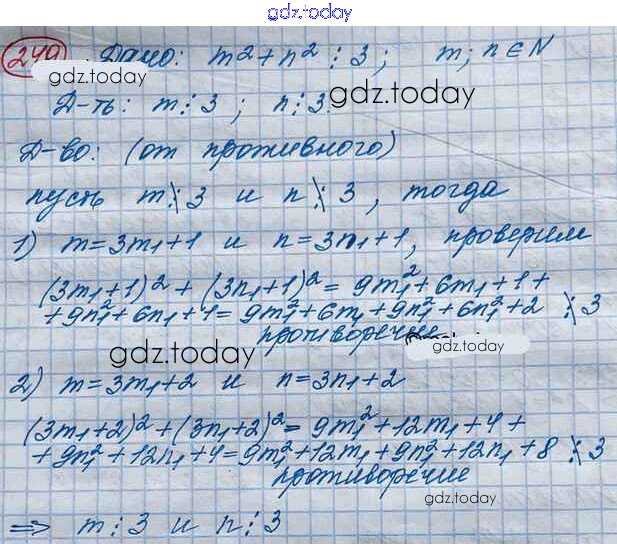 gdz.today
249 Дано: m² + n² ⋮ 3 ; m; n ∈ N
gdz.today
Д-ть: m ⋮ 3 ; n ⋮ 3. gdz.today
Д-во: (от противного)
пусть m ⋮̸ 3 и n ⋮̸ 3 , тогда
1) m = 3m₁ + 1 и n = 3n₁ + 1, проверим
(3m₁ + 1)² + (3n₁ + 1)² = 9m₁² + 6m₁ + 1 +
+ 9n₁² + 6n₁ + 1 = 9m₁² + 6m₁ + 9n₁² + 6n₁² + 2 ⋮̸ 3
противоречие
gdz.today gdz.today
2) m = 3m₁ + 2 и n = 3n₁ + 2
(3m₁ + 2)² + (3n₁ + 2)² = 9m₁² + 12m₁ + 4 +
+ 9n₁² + 12n₁ + 4 = 9m₁² + 12m₁ + 9n₁² + 12n₁ + 8 ⋮̸ 3
противоречие
gdz.today
⇒ m ⋮ 3 и n ⋮ 3